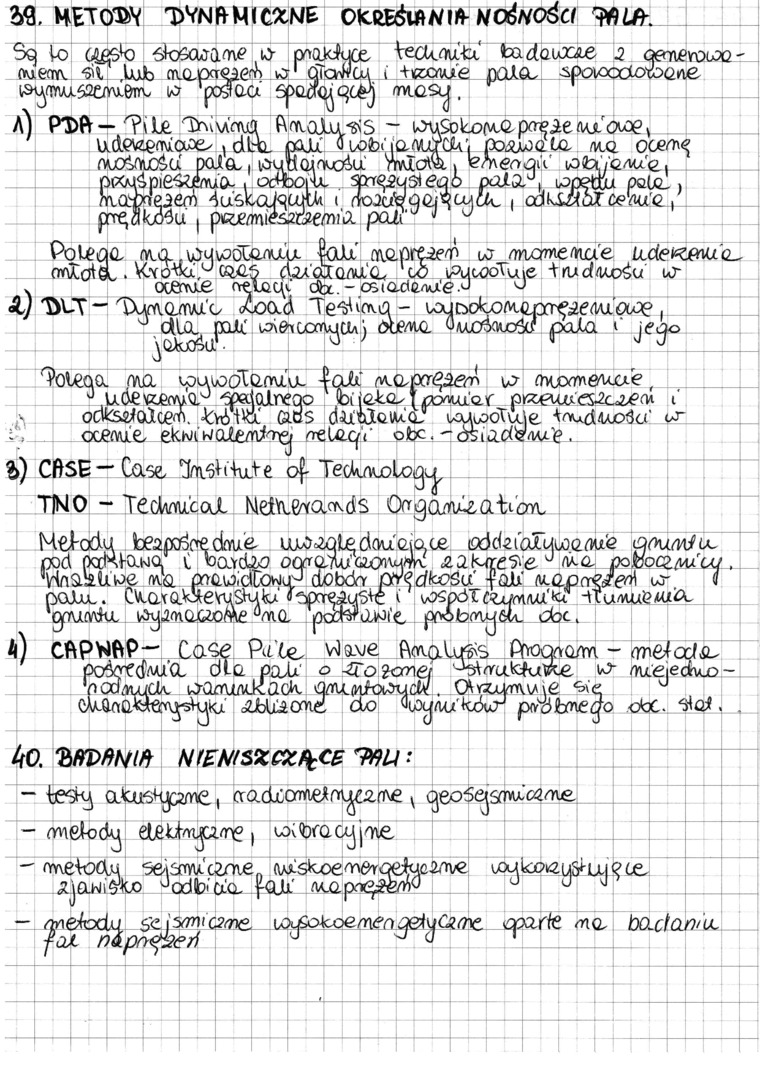 39. METODY DYNAMICZNE OKREŚLANIA NOŚNOŚCI PALA.
Są to często stosowane w praktyce techniki badawcze z generowa-
niem sił lub naprężeń w głowicy i trzonie pala spowodowane
wymuszeniem w postaci spadającej masy.
1) PDA – Pile Driving Analysis – wysokonaprężeniowe,
uderzeniowe, dla pali wbijanych; pozwala na ocenę
nośności pala, wydajności młota, energii wbijania,
przyśpieszenia, odboju sprężystego pala, wpędu pala,
naprężeń ściskających i rozciągających, odkształcenia,
prędkości, przemieszczenia pali
Polega na wywołaniu fali naprężeń w momencie uderzenia
młota. Krótki czas działania co wywołuje trudności w
ocenie relacji obc. – osiadanie.
2) DLT – Dynamic Load Testing – wysokonaprężeniowe,
dla pali wierconych; ocena nośności pala i jego
jakości.
Polega na wywołaniu fali naprężeń w momencie
uderzenia specjalnego bijaka (pomiar przemieszczeń i
odkształceń. Krótki czas działania wywołuje trudności w
ocenie ekwiwalentnej relacji obc. – osiadanie.
3) CASE – Case Institute of Technology
TNO – Technical Netherands Organization
Metody bezpośrednie uwzględniające oddziaływanie gruntu
pod podstawą i bardzo ograniczonym zakresie na pobocznicy.
Wrażliwe na prawidłowy dobór prędkości fali naprężeń w
palu. Charakterystyki sprężyste i współczynniki tłumienia
gruntu wyznaczone na podstawie próbnych obc.
4) CAPWAP – Case Pile Wave Analysis Program – metoda
pośrednia dla pali o złożonej strukturze w niejedno-
rodnych warunkach gruntowych. Otrzymuje się
charakterystyki zbliżone do wyników próbnego obc. stat.
40. BADANIA NIENISZCZĄCE PALI:
– testy akustyczne, radiometryczne, geosejsmiczne
– metody elektryczne, wibracyjne
– metody sejsmiczne niskoenergetyczne wykorzystujące
zjawisko odbicia fali naprężeń
– metody sejsmiczne wysokoenergetyczne oparte na badaniu
fal naprężeń